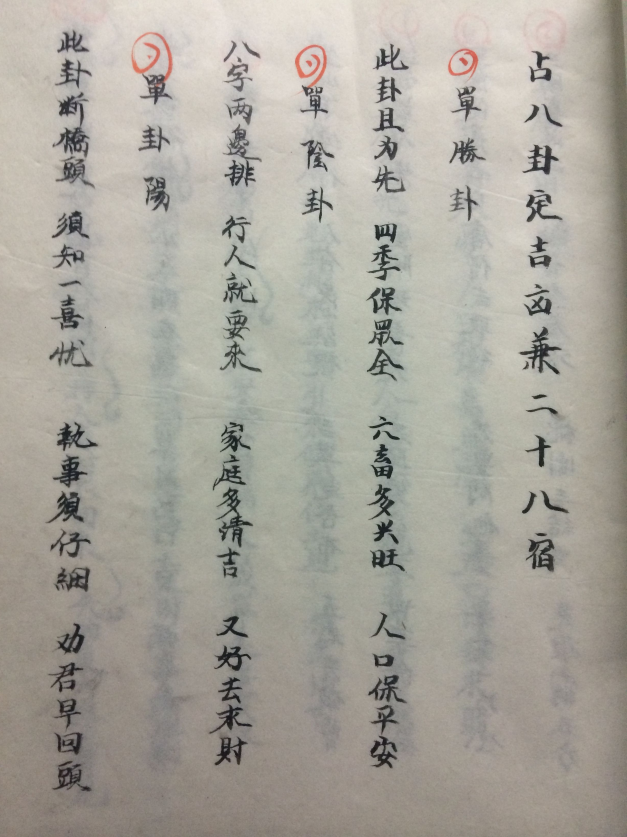 占八卦定吉凶兼二十八宿
單勝卦
此卦且为先 四季保眾全 六畜多兴旺 人口保平安
單陰卦
八字两邊排 行人就要來 家庭多清吉 又好去求財
單卦陽
此卦断橋頭 須知一喜忧 執事須仔細 劝君早回頭